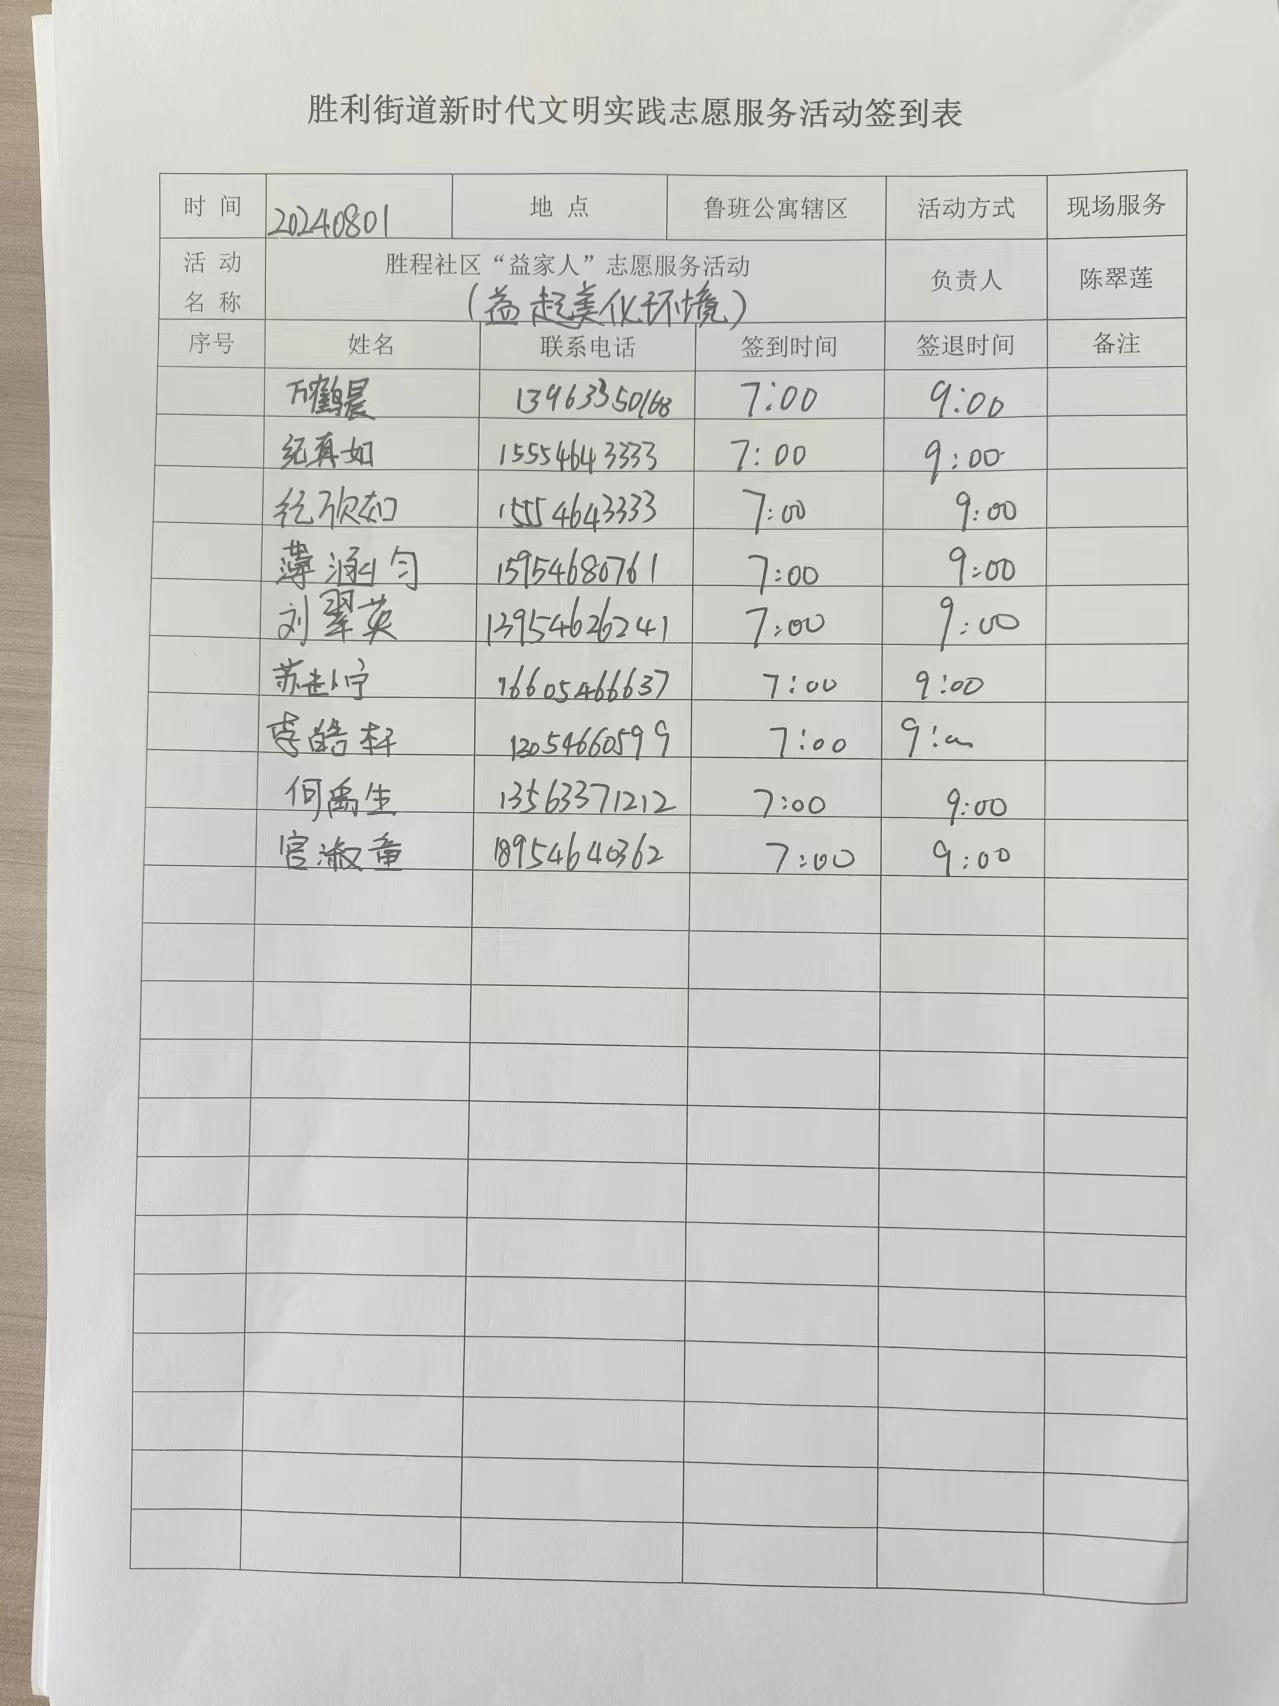 胜利街道新时代文明实践志愿服务活动签到表
时 间 20240801 地 点 鲁班公寓辖区 活动方式 现场服务
活 动 名 称 胜程社区“益家人”志愿服务活动 负责人 陈翠莲
(益起美化环境)
序号 姓名 联系电话 签到时间 签退时间 备注
万鹤晨 13963350168 7:00 9:00
纪真如 15554643333 7:00 9:00
纪欣如 15554643333 7:00 9:00
薄涵匀 15954680761 7:00 9:00
刘翠英 13954626241 7:00 9:00
苏 宁 16605466637 7:00 9:00
李皓轩 12054660599 7:00 9:00
何禹生 13563371212 7:00 9:00
官淑童 18954640362 7:00 9:00